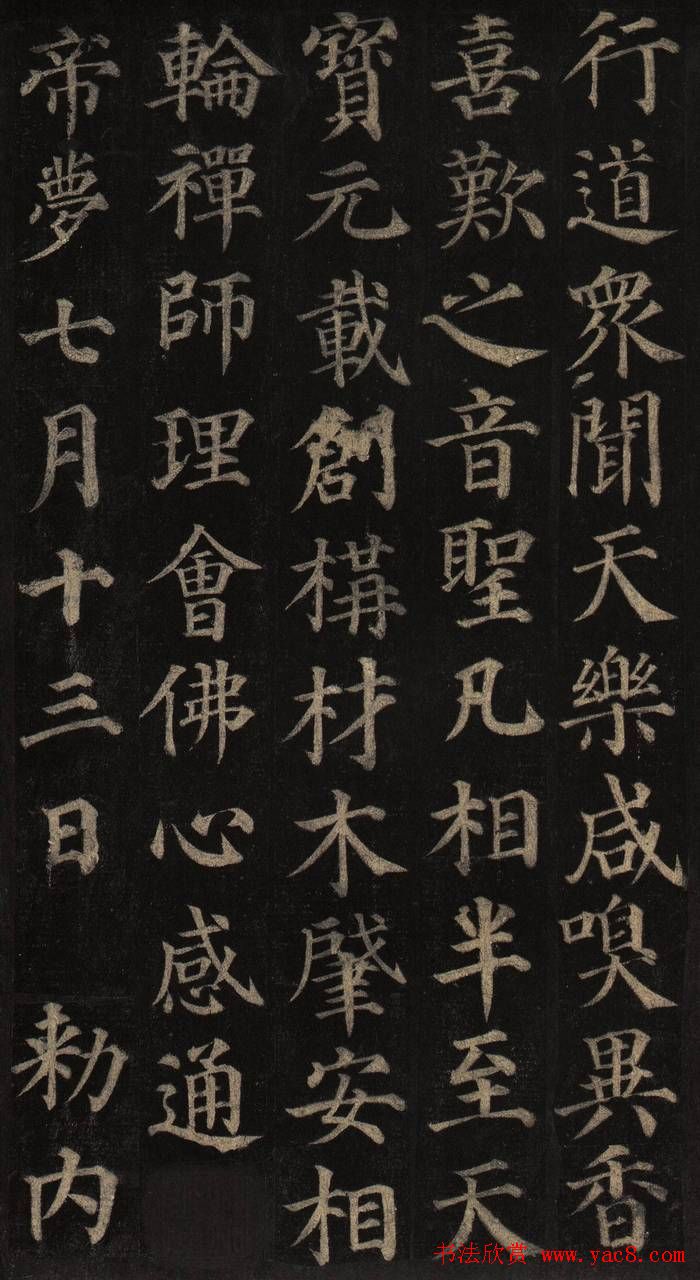 行道衆聞天樂咸嗅異香
喜歎之音聖凡相半至天
寶元載創構材木肈安相
輪禪師理會佛心感通
帝夢七月十三日 勅内
书法欣赏 www.yac8.com